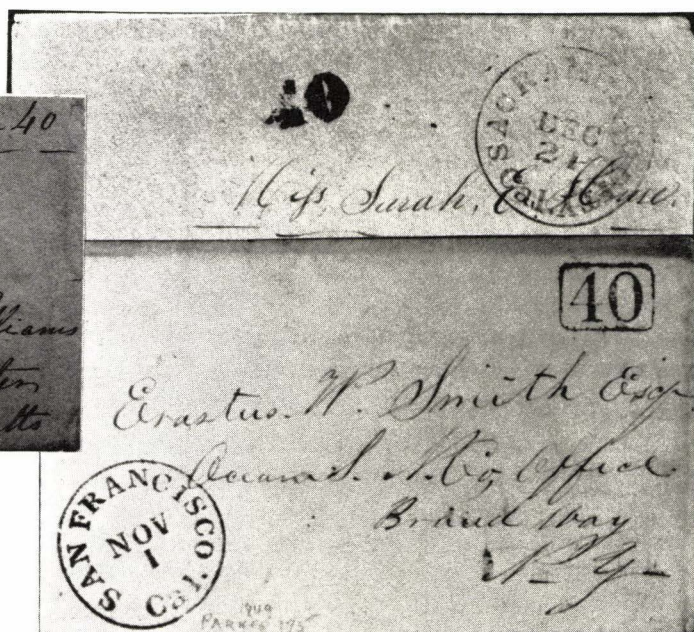 40
40
SACRAM
DEC
21
Cal.
Miss Sarah, E.
liams
tts
40
Erastus. W. Smith Esqr
Ocean S. N. Co, Office
Broad way
N. Y.
SAN FRANCISCO
NOV
1
Cal.
1849
PARKER 175